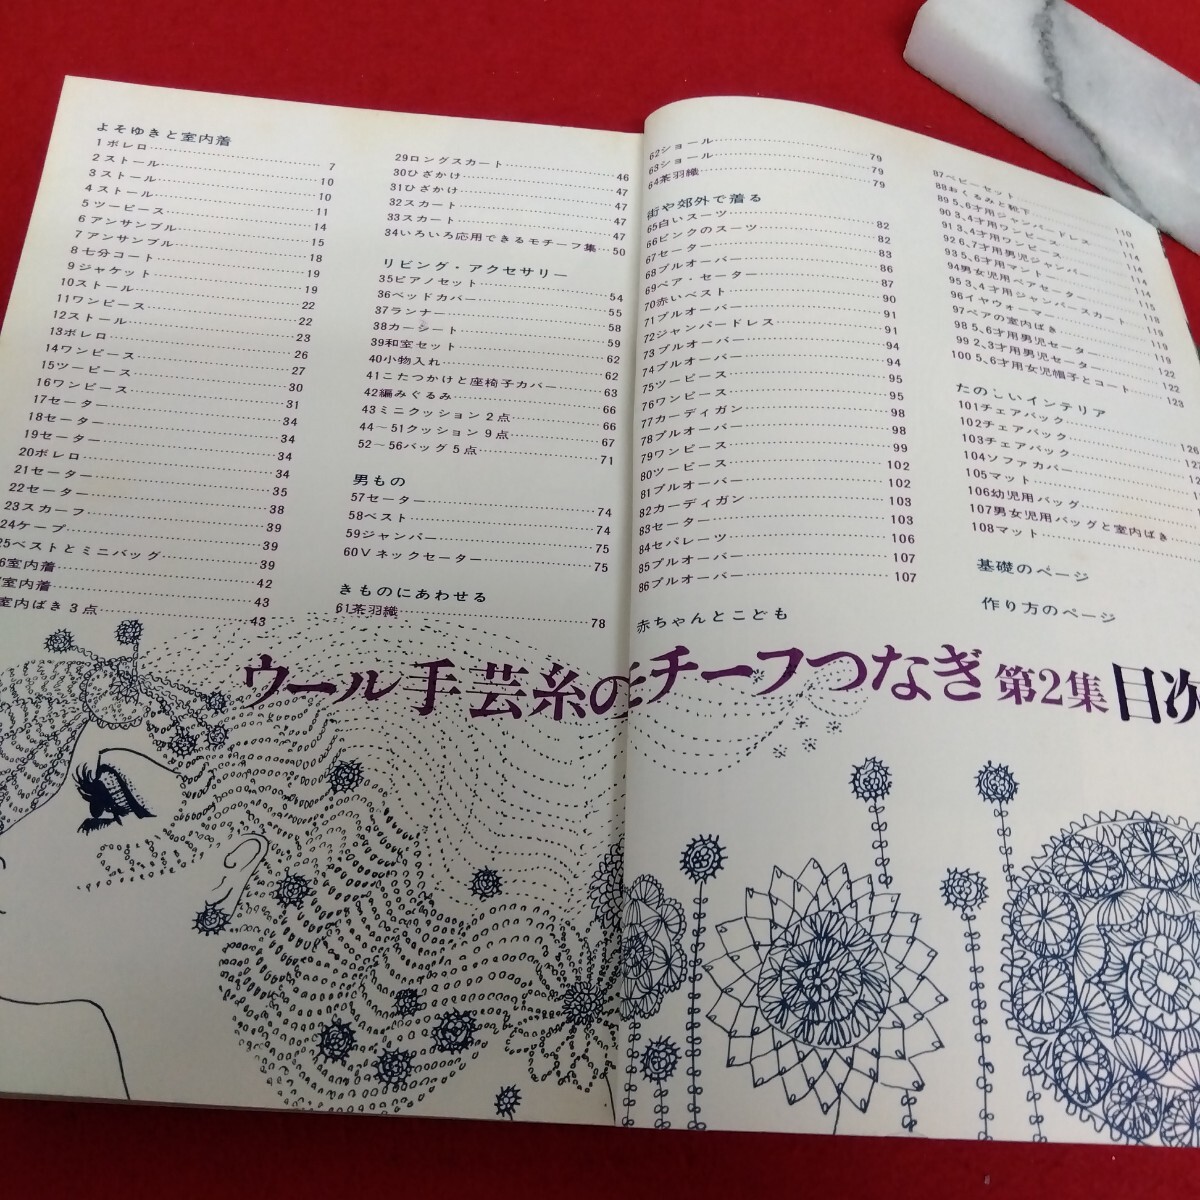 よそゆきと室内着
1ボレロ 7
2ストール 10
3ストール 10
4ストール 11
5ツーピース 14
6アンサンブル 15
7アンサンブル 18
8七分コート 19
9ジャケット 19
10ストール 22
11ワンピース 22
12ストール 23
13ボレロ 26
14ワンピース 27
15ツーピース 30
16ワンピース 31
17セーター 34
18セーター 34
19セーター 34
20ボレロ 34
21セーター 35
22セーター 38
23スカーフ 39
24ケープ 39
25ベストとミニバッグ 39
6室内着 42
室内着 43
室内ばき3点 43
29ロングスカート 46
30ひざかけ 47
31ひざかけ 47
32スカート 47
33スカート 47
34いろいろ応用できるモチーフ集 50
リビング・アクセサリー
35ピアノセット 54
36ベッドカバー 55
37ランナー 58
38カーシート 59
39和室セット 62
40小物入れ 62
41こたつかけと座椅子カバー 63
42編みぐるみ 66
43ミニクッション2点 66
44〜51クッション9点 67
52〜56バッグ5点 71
男もの
57セーター 74
58ベスト 74
59ジャンパー 75
60Vネックセーター 75
きものにあわせる
61茶羽織 78
62ショール 79
63ショール 79
64茶羽織 79
街や郊外で着る
65白いスーツ 82
66ピンクのスーツ 82
67セーター 83
68プルオーバー 86
69ペア・セーター 87
70赤いベスト 90
71プルオーバー 91
72ジャンパードレス 91
73プルオーバー 94
74プルオーバー 94
75ツーピース 95
76ワンピース 95
77カーディガン 98
78プルオーバー 98
79ワンピース 99
80ツーピース 102
81プルオーバー 102
82カーディガン 103
83セーター 103
84セパレーツ 106
85プルオーバー 107
86プルオーバー 107
赤ちゃんとこども
87ベビーセット 110
88おくるみと靴下 111
89 5、6才用ジャンパードレス 114
90 3、4才用ワンピース 114
91 3、4才用ワンピース 114
92 6、7才用男児ジャンパー 114
93 5、6才用マントー 115
94男女児用ペアセーター 118
95 3、4才用ジャンパースカート 119
96イヤウォーマー
97ペアの室内ばき 119
98 5、6才用男児セーター 122
99 2、3才用男児セーター 122
100 5、6才用女児帽子とコート 123
たのしいインテリア
101チェアバック 126
102チェアバック
103チェアバック
104ソファカバー
105マット
106幼児用バッグ
107男女児用バッグと室内ばき
108マット
基礎のページ
作り方のページ
ウール手芸糸のモチーフつなぎ 第2集 目次